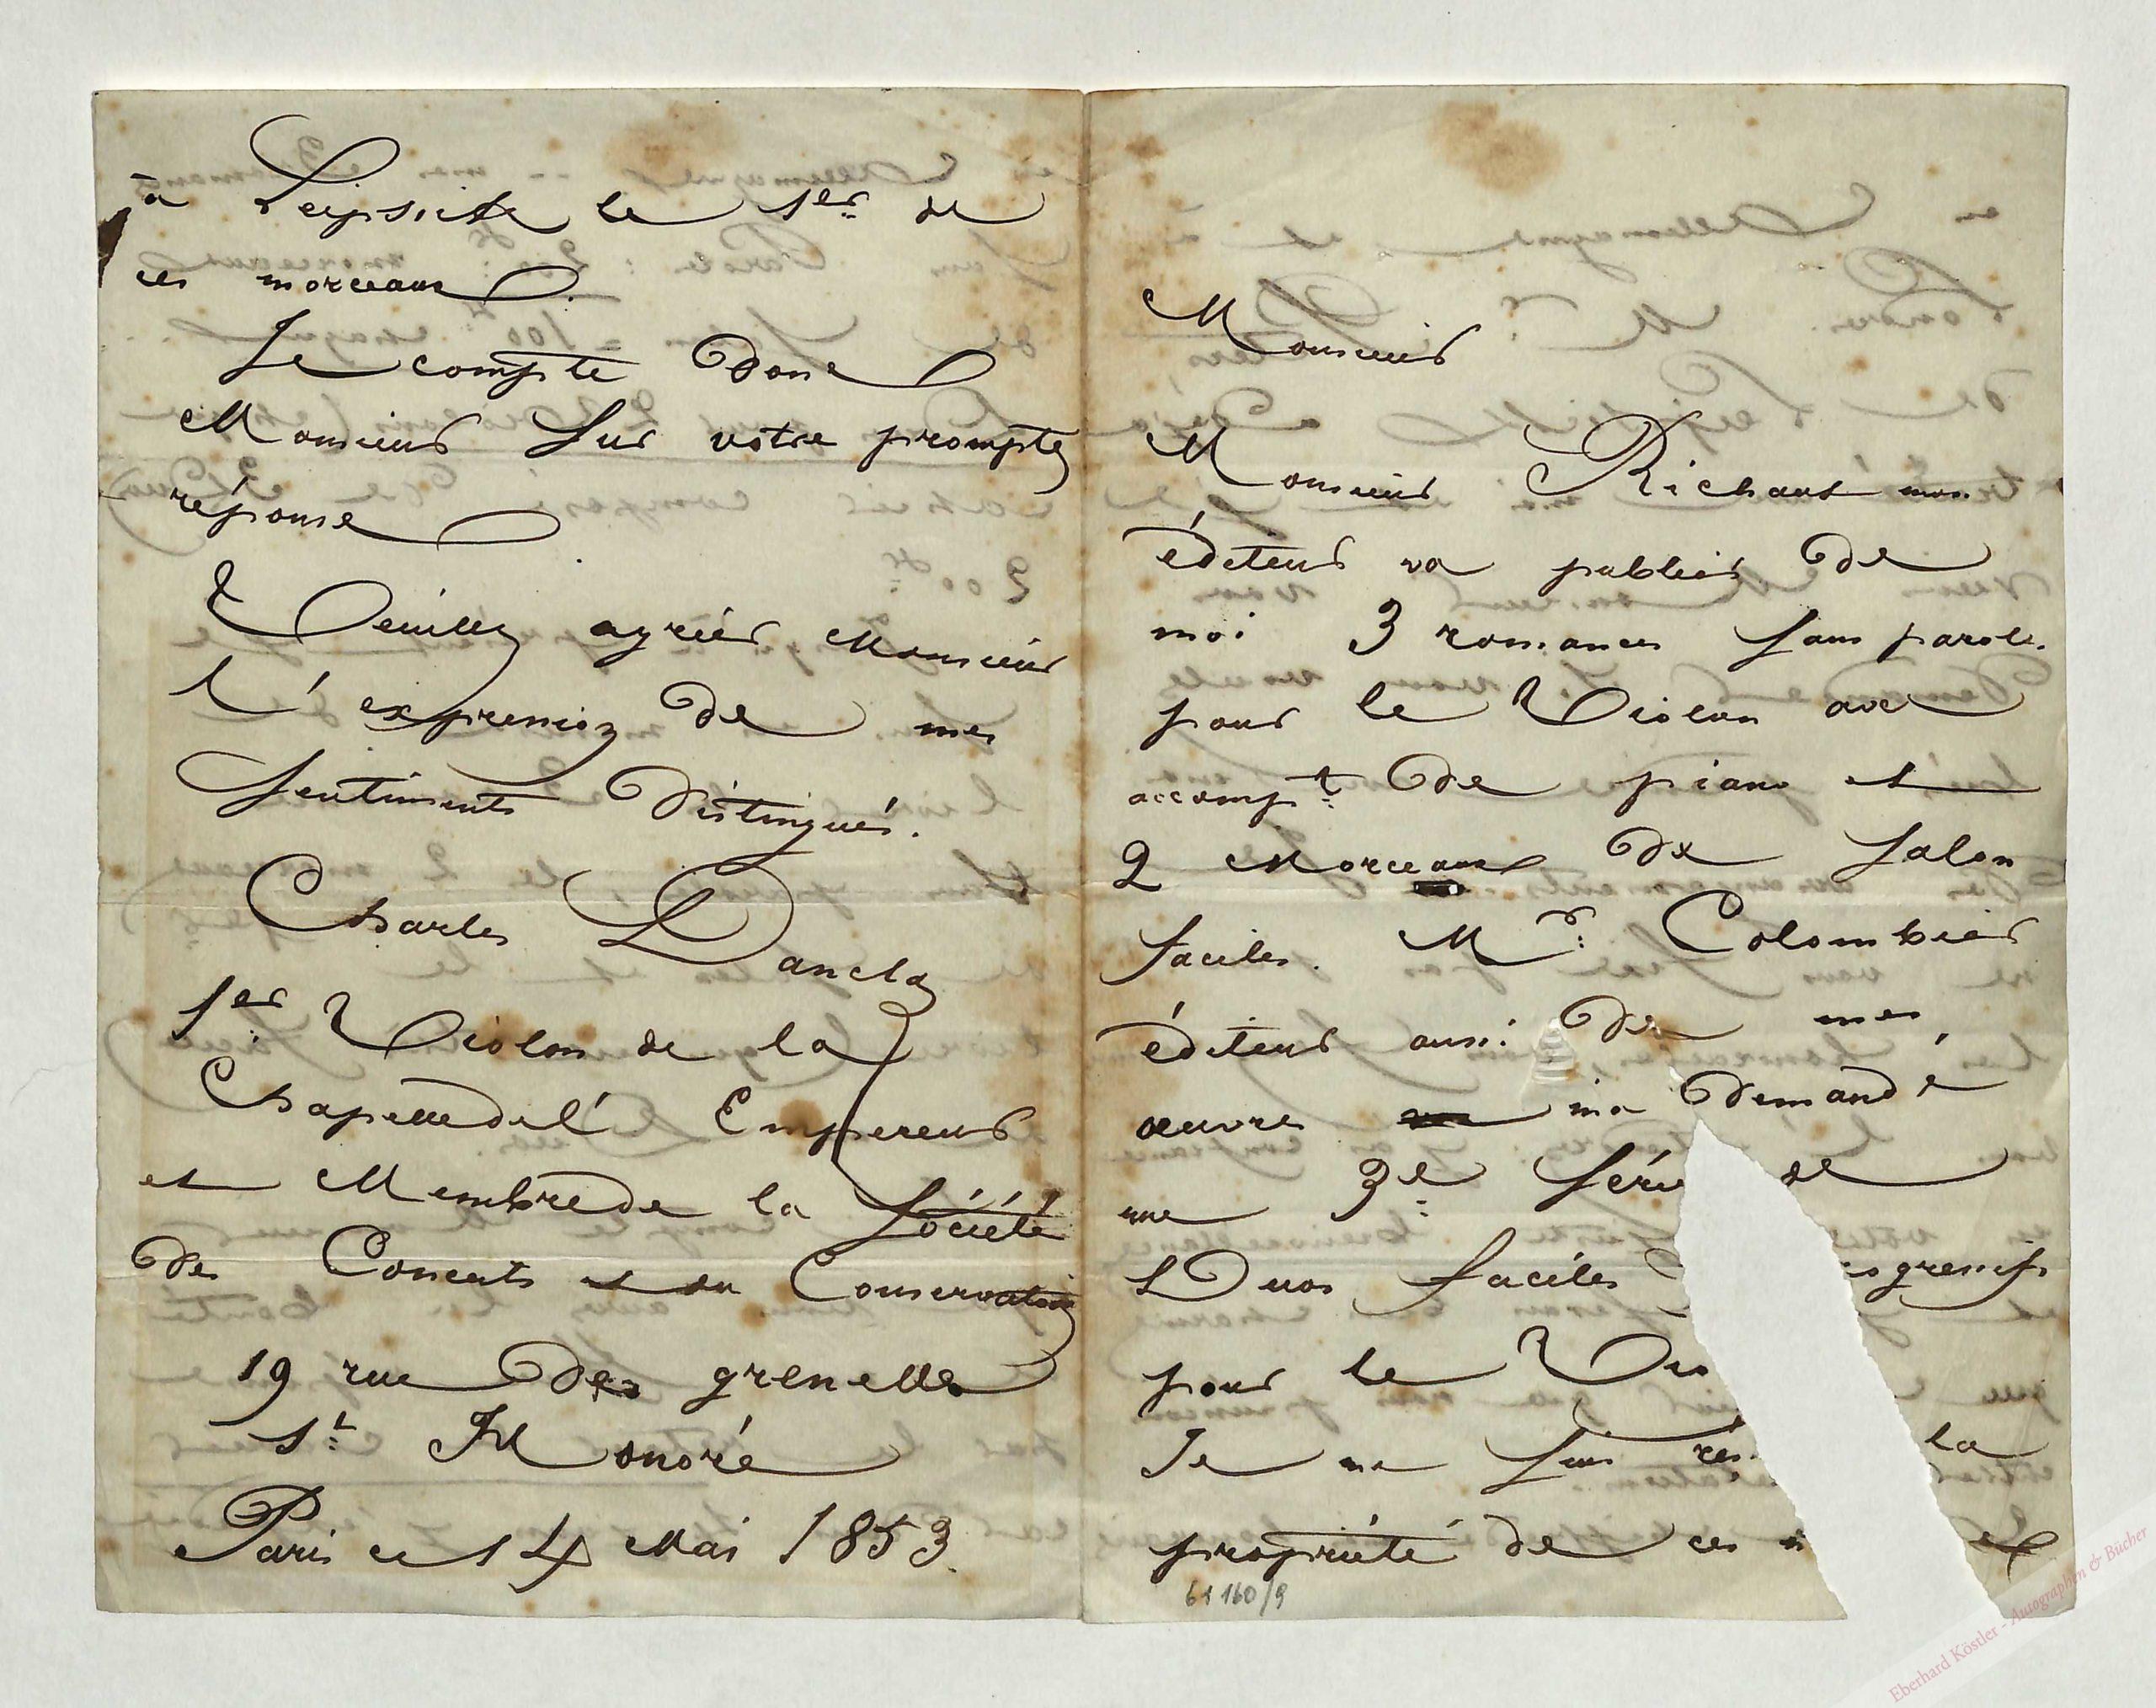 Monsieur
Monsieur Richault mon
éditeur va publier de
moi 3 romances sans parole
pour le Violon avec
accompt de piano et
2 Morceaux de Salon
faciles. Mr Colombier
éditeur aussi de mes
œuvres m'a demandé
une 3e Séri de
Duos faciles ogressifs
pour le Vio
Je me suis rés la
propriété de ces
61 160/9
à Leipsick le 1er de
ces morceaux.
Je compte donc
Monsieur sur votre prompte
réponse
Veuillez agréer Monsieur
l'expression de mes
sentiments distingués.
Charles Dancla
1er Violon de la
Chapelle de l'Empereur
et Membre de la Société
des Concerts du Conservatoire
19 rue de grenelle
St Honoré
Paris ce 14 Mai 1853.
Eberhard Köstler - Autographen & Bücher